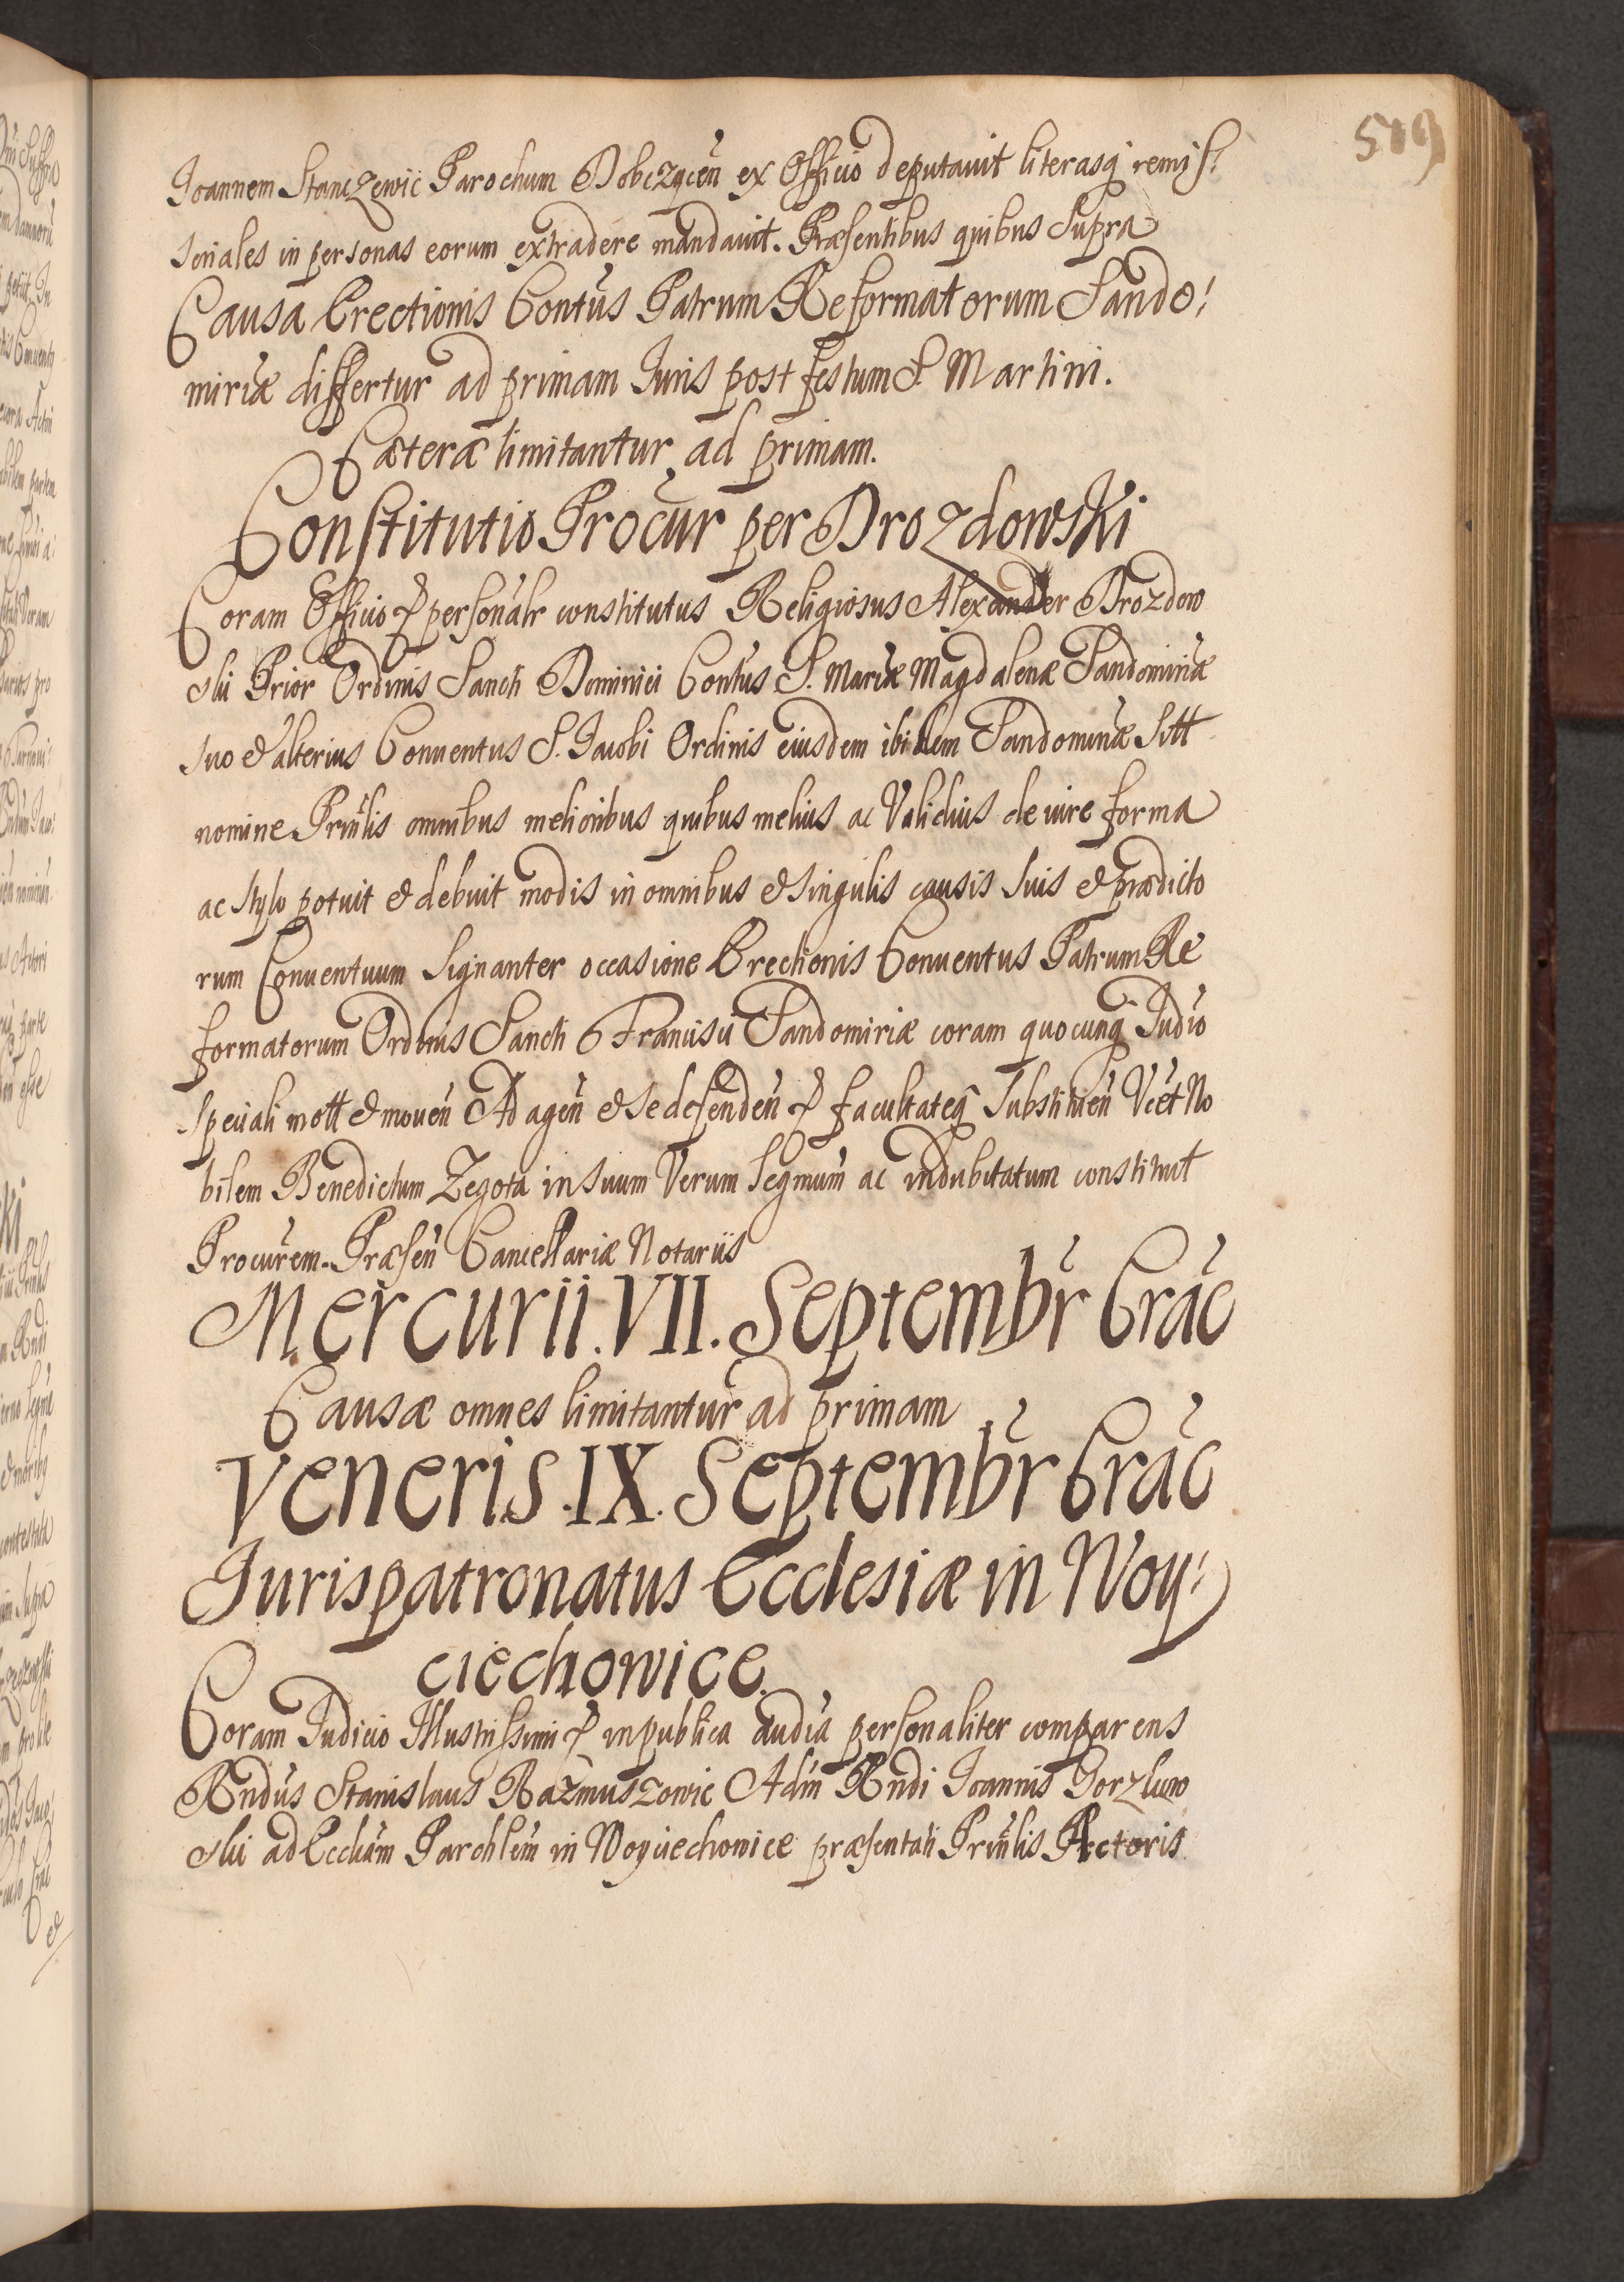 519
Joannem Stanczewic Parochum Dobczycen ex Officio deputavit literasq remis:
soriales in personas eorum extradere mandavit. Præsentibus quibus Supra
Causa Erectionis Contus Patrum Reformatorum Sando:
miriæ differtur ad primam Juris post festum S. Martini.
Cæteræ limitantur ad primam.
Constitutio Procur per Drozdowski
Coram Officio & personalr constitutus Religiosus Alexander Drozdow
ski Prior Ordinis Sancti Dominici Contus S. Mariæ Magdalenæ Sandomiriæ
suo & alterius Conventus S. Jacobi Ordinis eiusdem ibidem Sandomiriæ Sitt
nomine Prinlis omnibus melioribus quibus melius ac Validius de iure forma
ac stylo potuit & debuit modis in omnibus & singulis causis suis & prædicto
rum Conventuum Signanter occasione Erectionis Conventus Patrum Re
formatorum Ordinis Sancti Francisci Sandomiriæ coram quocunq Judio
speciali mott & moven Ad agen & se defenden & facultateq substituen Vcet No
bilem Benedictum Zegota in suum Verum legmum ac indubitatum constituit
Procurem. Præsen Cancellariæ Notariis
Mercurii. VII. Septembr Crac
Causæ omnes limitantur ad primam
Veneris. IX. Septembr Crac
Jurispatronatus Ecclesiæ in Woy:
ciechowice.
Coram Judicio Illustrissimi & in publica audia personaliter comparens
Rndus Stanislaus Razmuszowic Adm Rndi Joannis Gorzkow
ski ad Eccliam Parchlem in Woyciechowice præsentati Prinlis Rectoris